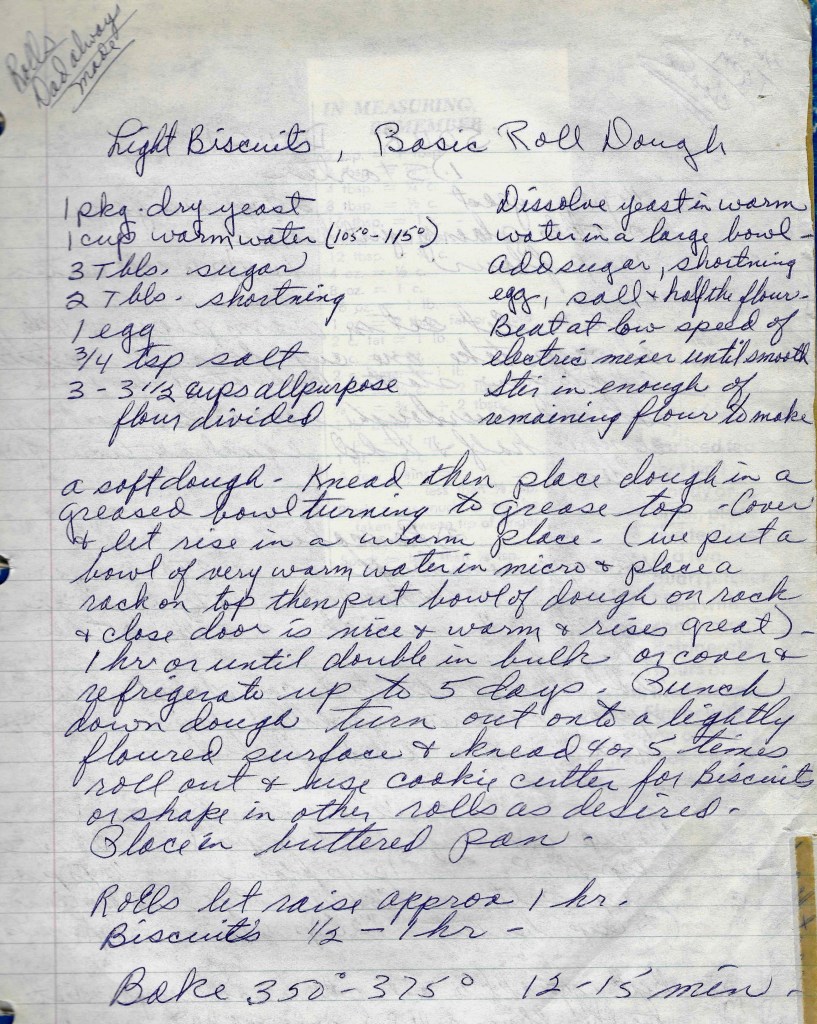 Rolls
Dad always
made
Light Biscuits, Basic Roll Dough
1 pkg. dry yeast
1 cup warm water (105°-115°)
3 Tbls. sugar
2 Tbls. shortning
1 egg
3/4 tsp salt
3 - 3 1/2 cups allpurpose
flour divided
Dissolve yeast in warm
water in a large bowl -
add sugar, shortning
egg, salt & half the flour -
Beat at low speed of
electric mixer until smooth
Stir in enough of
remaining flour to make
a soft dough - Knead then place dough in a
greased bowl turning to grease top - Cover
& let rise in a warm place - (we put a
bowl of very warm water in micro & place a
rack on top then put bowl of dough on rack
& close door is nice & warm & rises great) -
1 hr or until double in bulk or cover &
refrigerate up to 5 days. Punch
down dough turn out onto a lightly
floured surface & knead 4 or 5 times
roll out & use cookie cutter for Biscuits
or shape in other rolls as desired -
Place in buttered pan -
Rolls let raise approx 1 hr.
Biscuits 1/2 - 1 hr -
Bake 350° - 375° 12-15 min.
IN MEASURING,
REMEMBER